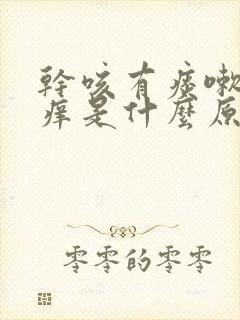 幹咳有痰嗽
痒是什麼原
零零的零零